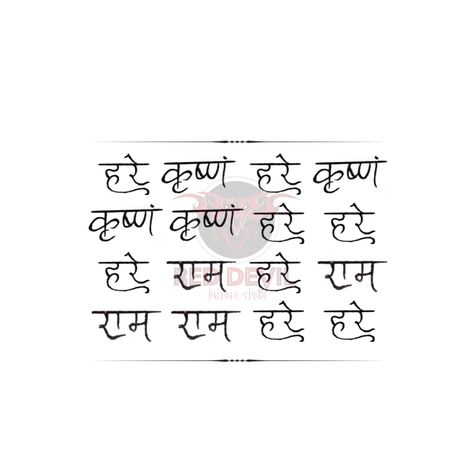 हरे कृष्णं हरे कृष्णं
कृष्णं कृष्णं हरे हरे
हरे राम हरे राम
राम राम हरे हरे
RED DEVIL